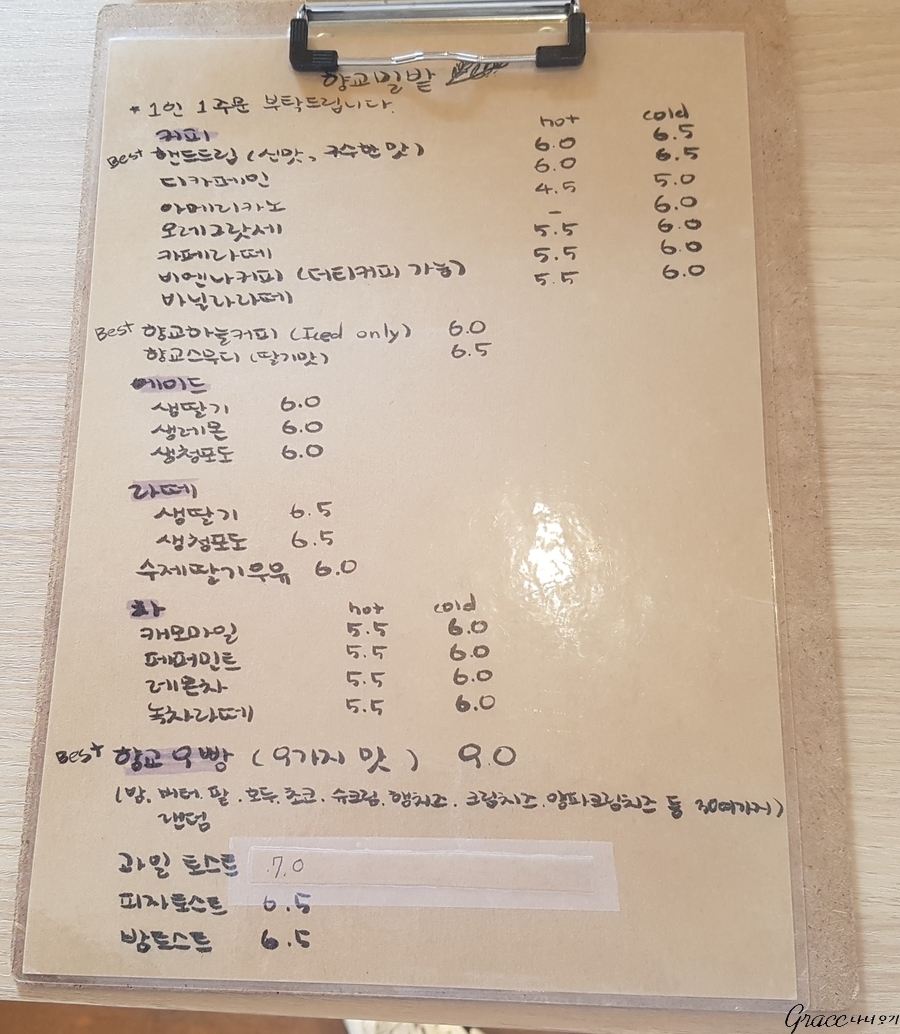 향교밀밭
* 1인 1주문 부탁드립니다.
커피 hot cold
Best 핸드드립 (신맛, 구수한 맛) 6.0 6.5
디카페인 6.0 6.5
아메리카노 4.5 5.0
오레그랏세 - 6.0
카페라떼 5.5 6.0
비엔나커피 (더티커피 가능) 5.5 6.0
바닐라라떼 5.5 6.0
Best 향교하늘커피 (Iced only) 6.0
향교스무디 (딸기맛) 6.5
에이드
생딸기 6.0
생레몬 6.0
생청포도 6.0
라떼
생딸기 6.5
생청포도 6.5
수제딸기우유 6.0
차 hot cold
캐모마일 5.5 6.0
페퍼민트 5.5 6.0
레몬차 5.5 6.0
녹차라떼 5.5 6.0
Best 향교 9빵 (9가지 맛) 9.0
(밤, 버터, 팥, 호두, 초코, 슈크림, 햄치즈, 크림치즈, 양파크림치즈 등 30여가지)
랜덤
과일 토스트 7.0
피자토스트 6.5
밤토스트 6.5
Grace나나호기